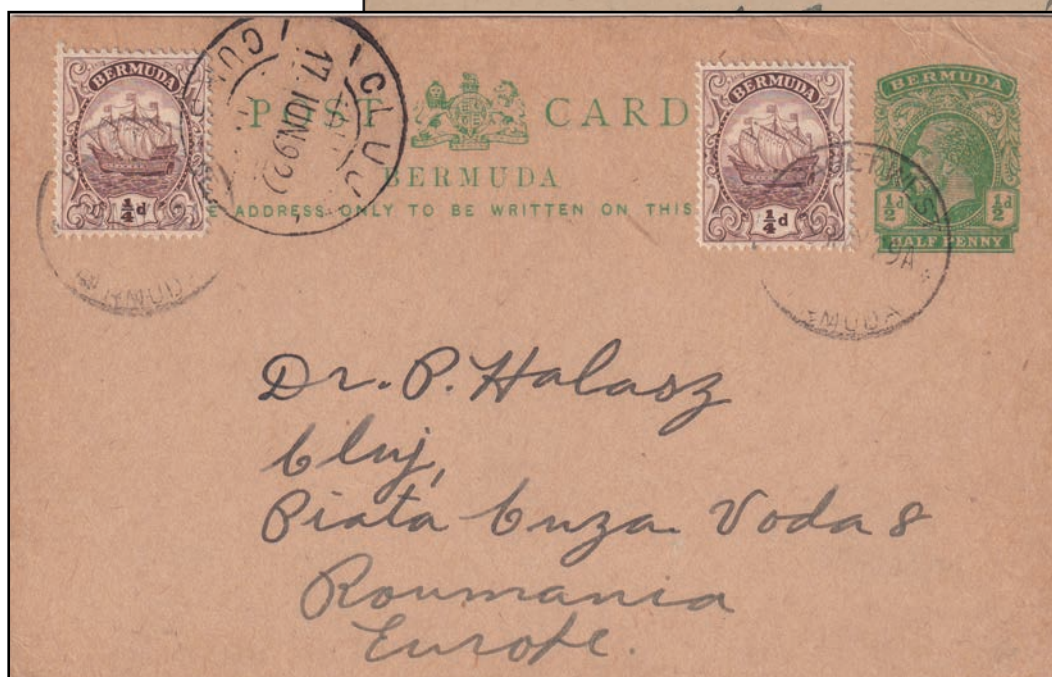 BERMUDA
1/4 d
CLUJ
17 IUN 922
POST CARD
BERMUDA
E ADDRESS ONLY TO BE WRITTEN ON THIS
BERMUDA
1/4 d
BERMUDA
1/2 d 1/2 d
HALF PENNY
9A
Dr. P. Halasz
Cluj,
Piata Cuza Voda 8
Roumania
Europe.